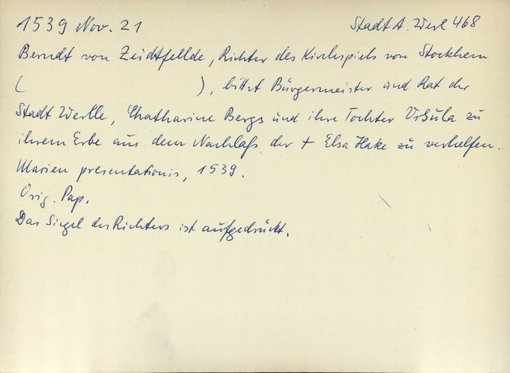 1539 Nov. 21 Stadt A. Werl 468
Berndt von Zeidtfellde, Richter des Kirchspiels von Stockhem
( ), bittet Bürgermeister und Rat der
Stadt Werlle, Chatharine Bergs und ihre Tochter Ursula zu
ihrem Erbe aus dem Nachlaß der + Elsa Hake zu verhelfen.
Marien presentationis, 1539.
Orig. Pap.
Das Siegel des Richters ist aufgedrückt.